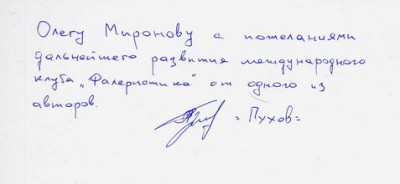 Олегу Миронову с пожеланиями
дальнейшего развития международного
клуба „Фалеристика" от одного из
авторов.
= Пухов =